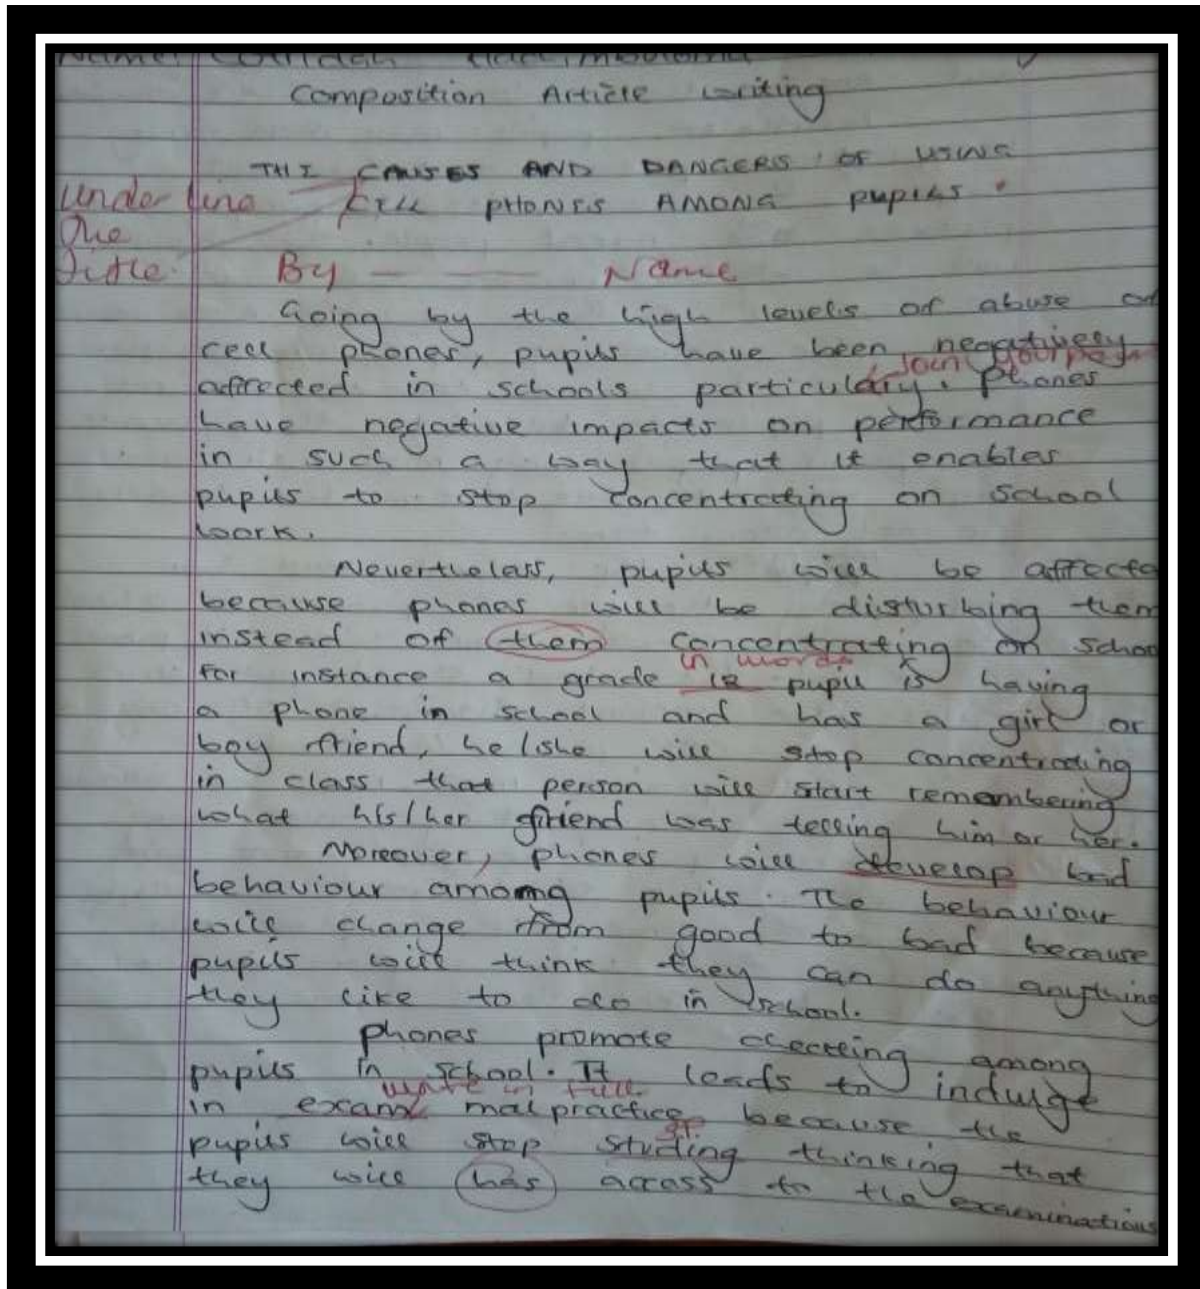 Composition Article writing
THE CAUSES AND DANGERS OF USING
Underline CELL PHONES AMONG pupils
The
Title. By — — Name
Going by the high levels of abuse of
cell phones, pupils have been negatively
Join your
affected in schools particulary. Phones
have negative impacts on performance
in such a way that it enables
pupils to stop concentrating on school
work.
Nevertheless, pupils will be affecte
because phones will be disturbing them
instead of them concentrating on schoo
in words
for instance a grade 12 pupil is having
a phone in school and has a girl or
boy friend, he/she will stop concentrating
in class that person will start remembering
what his/her friend was telling him or her.
Moreover, phones will develop bad
behaviour among pupils. The behaviour
will change from good to bad because
pupils will think they can do anything
they like to do in school.
phones promote cheating among
pupils in school. It leads to indulge
write in full
in exam malpractice because the
sp
pupils will stop studing thinking that
they will has access to the examinations